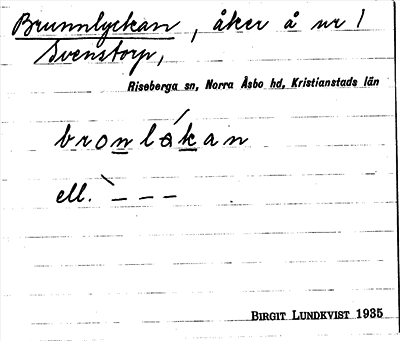 Brunnlyckan, åker å nr 1
Svenstorp,
Riseberga sn, Norra Åsbo hd, Kristianstads län
bronlókan
ell. ` - - -
BIRGIT LUNDKVIST 1935